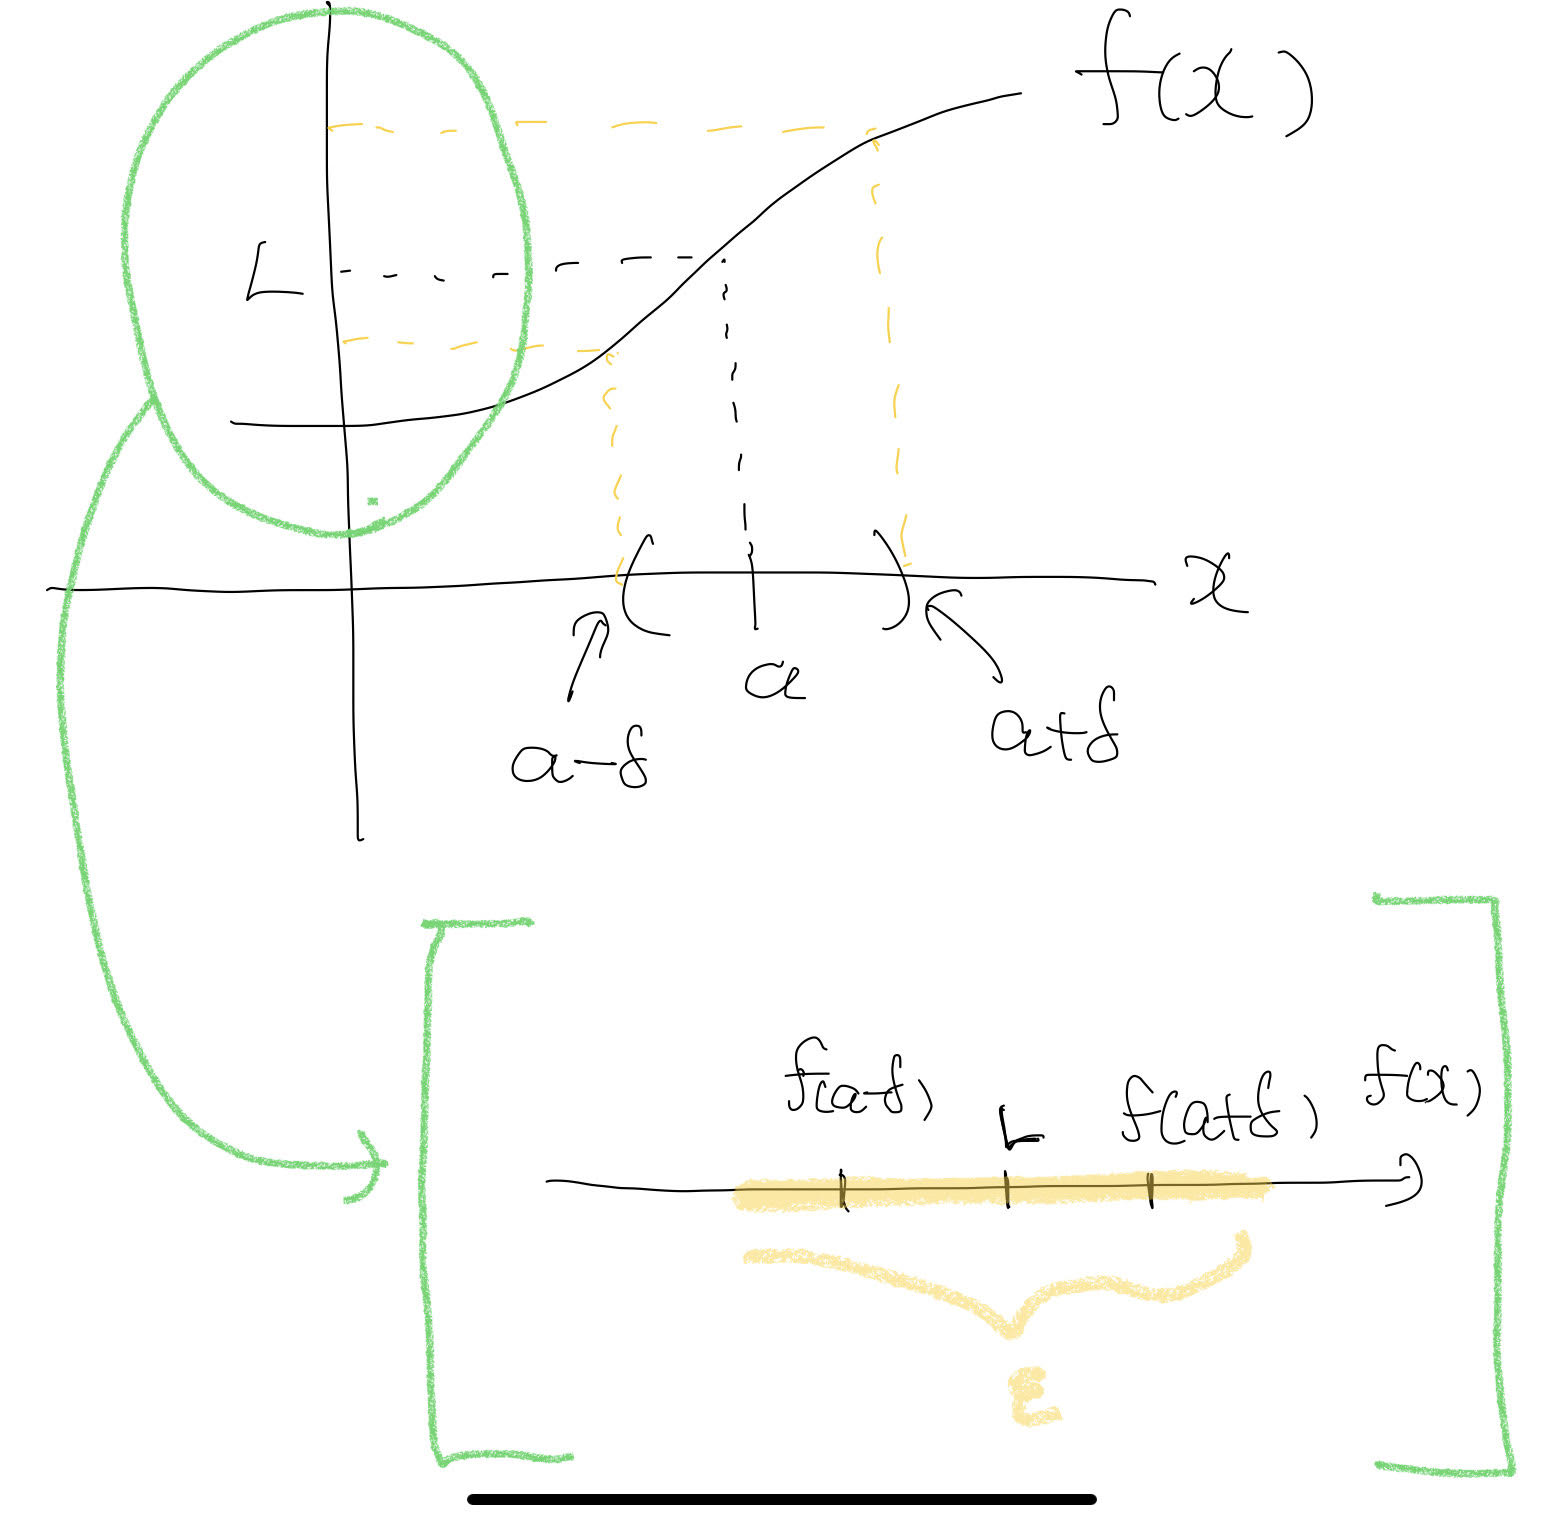 f(x)
L
x
a
a+δ
a-δ
f(a-δ)
L
f(a+δ)
f(x)
ε